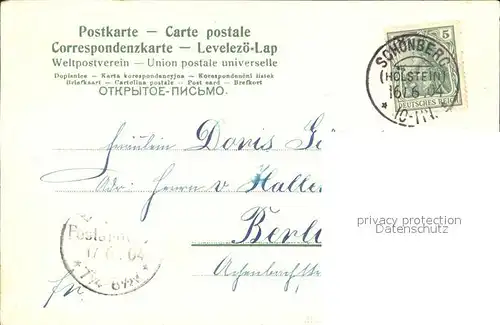 Postkarte — Carte postale
Correspondenzkarte — Levelező-Lap
Weltpostverein — Union postale universelle
Dopisnice — Karta korespondencyjna — Korespondenčni listek
Briefkaart — Cartolina postale — Post card — Brefkort
ОТКРЫТОЕ-ПИСЬМО.
5
SCHÖNBERG
(HOLSTEIN)
16.6.04
10-11V.
DEUTSCHES REICH
Fräulein Doris
Adr. Herrn v. Halle
Berlin
privacy protection
VINDARO.COM
17.6.04
Achenbachstr
fr.